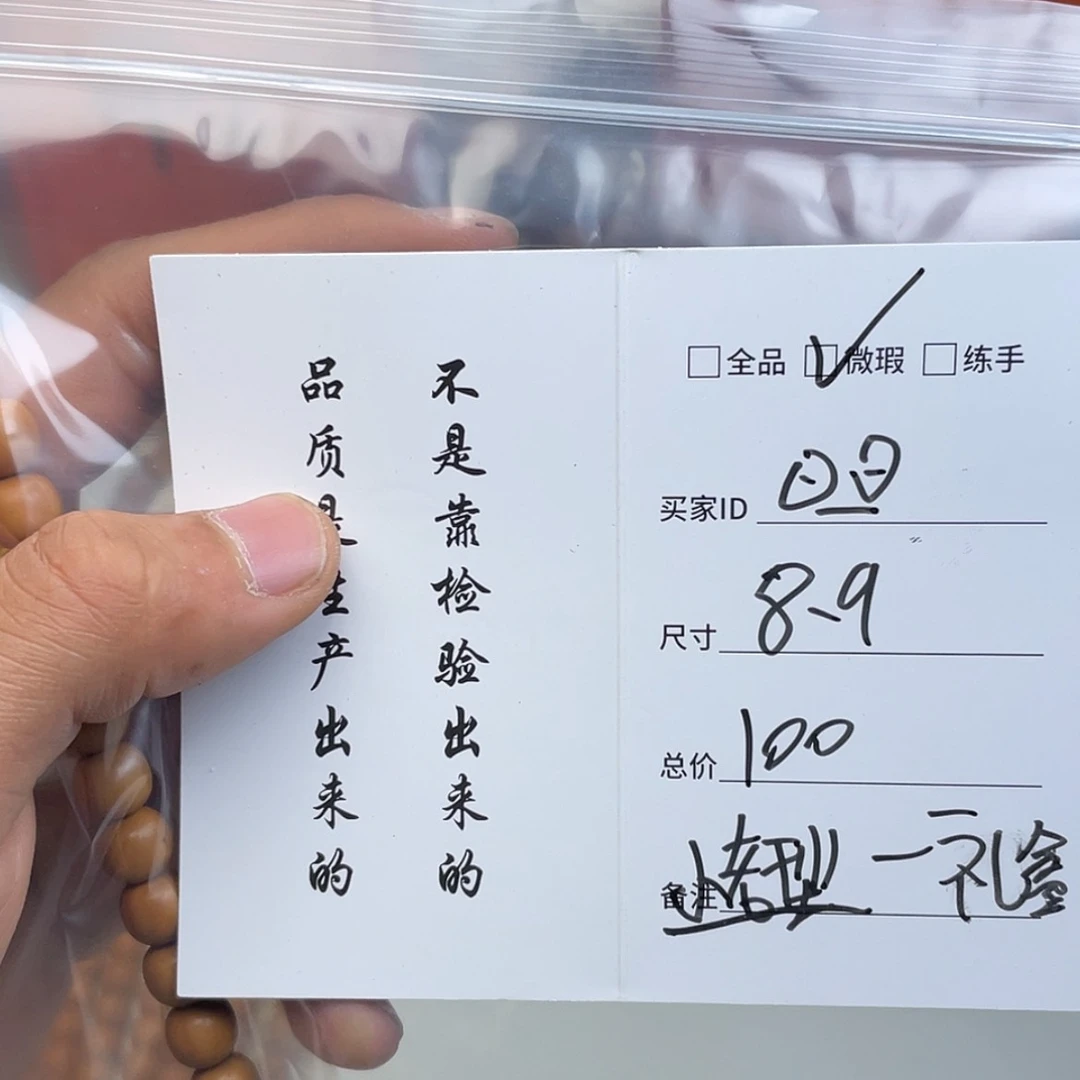 不是靠检验出来的
品质是生产出来的
全品 微瑕 练手
买家ID
尺寸 8-9
总价 100
备注 造型 一礼盒